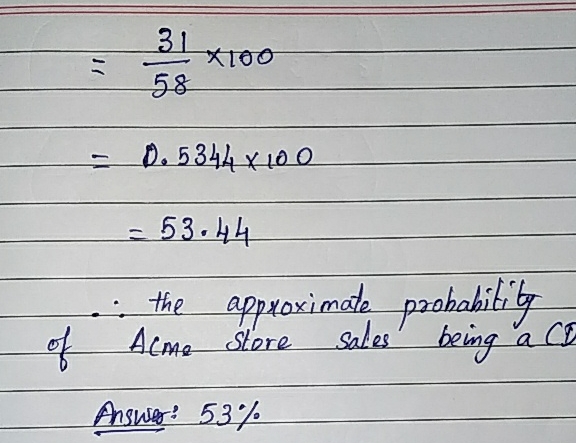 = 31/58 ×100
= 0.5344 × 100
= 53.44
∴ the approximate probability
of Acme Store sales being a CD
Answer: 53%